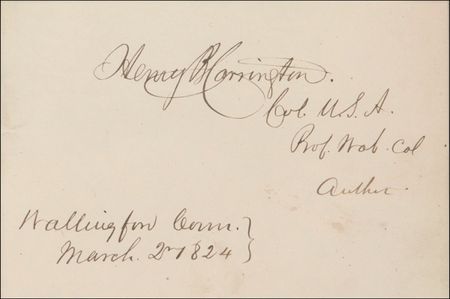 Henry B Carrington.
Col. U.S.A.
Prof. Wab. Col
Author.
Wallingford Conn.
March. 2nd 1824